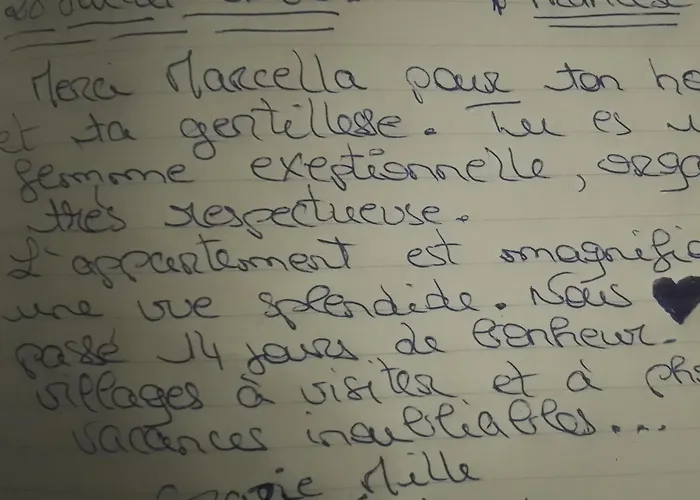 Merci Marcella pour ton
et ta gentillesse. Tu es
femme exeptionnelle,
très respectueuse.
L'appartement est magnific
une vue splendide. Nous
passé 14 jours de bonheur.
villages à visiter et à
vacances inoubliables...
Mille